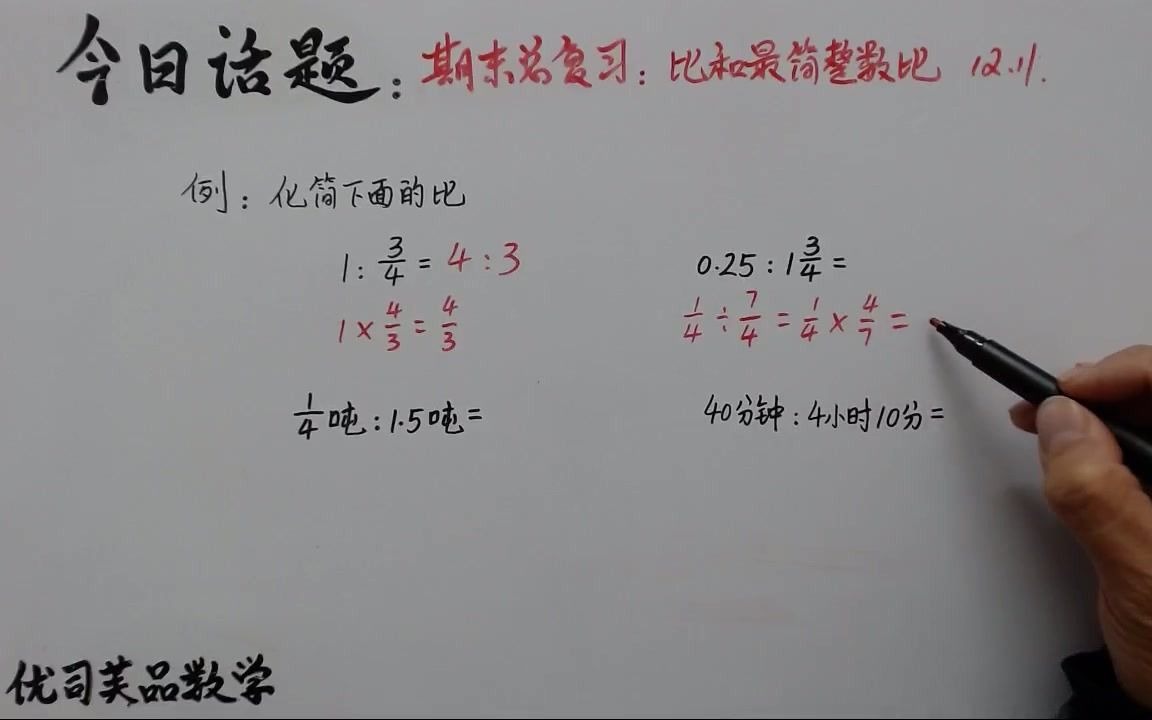 今日话题：期末总复习：比和最简整数比 12.11.
例：化简下面的比
1 : 3/4 = 4 : 3
0.25 : 1 3/4 =
1 × 4/3 = 4/3
1/4 ÷ 7/4 = 1/4 × 4/7 =
1/4吨 : 1.5吨 =
40分钟 : 4小时10分 =
优司芙品数学